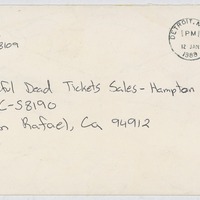 8109
DETROIT, M
PM
12 JAN
1988
ful Dead Tickets Sales - Hampton
C-S8190
n Rafael, Ca 94912